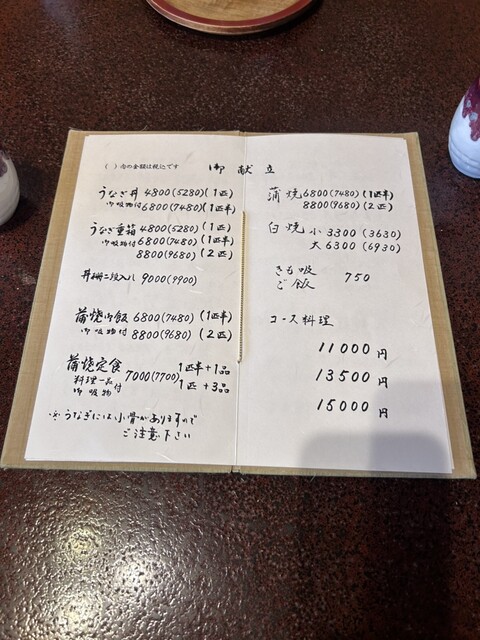 御献立
( ) 内の金額は税込です
うなぎ丼 4800(5280)(1匹)
御吸物付 6800(7480)(1匹半)
うなぎ重箱 4800(5280)(1匹)
御吸物付 6800(7480)(1匹半)
8800(9680)(2匹)
丼 二段入り 9000(9900)
蒲焼御飯 6800(7480)(1匹半)
御吸物付 8800(9680)(2匹)
蒲焼定食 7000(7700) 1匹半+1品
料理一品付 1匹+3品
御吸物
※うなぎには小骨がありますので
ご注意下さい
蒲焼 6800(7480)(1匹半)
8800(9680)(2匹)
白焼 小 3300(3630)
大 6300(6930)
きも吸 750
ご飯
コース料理
11000円
13500円
15000円